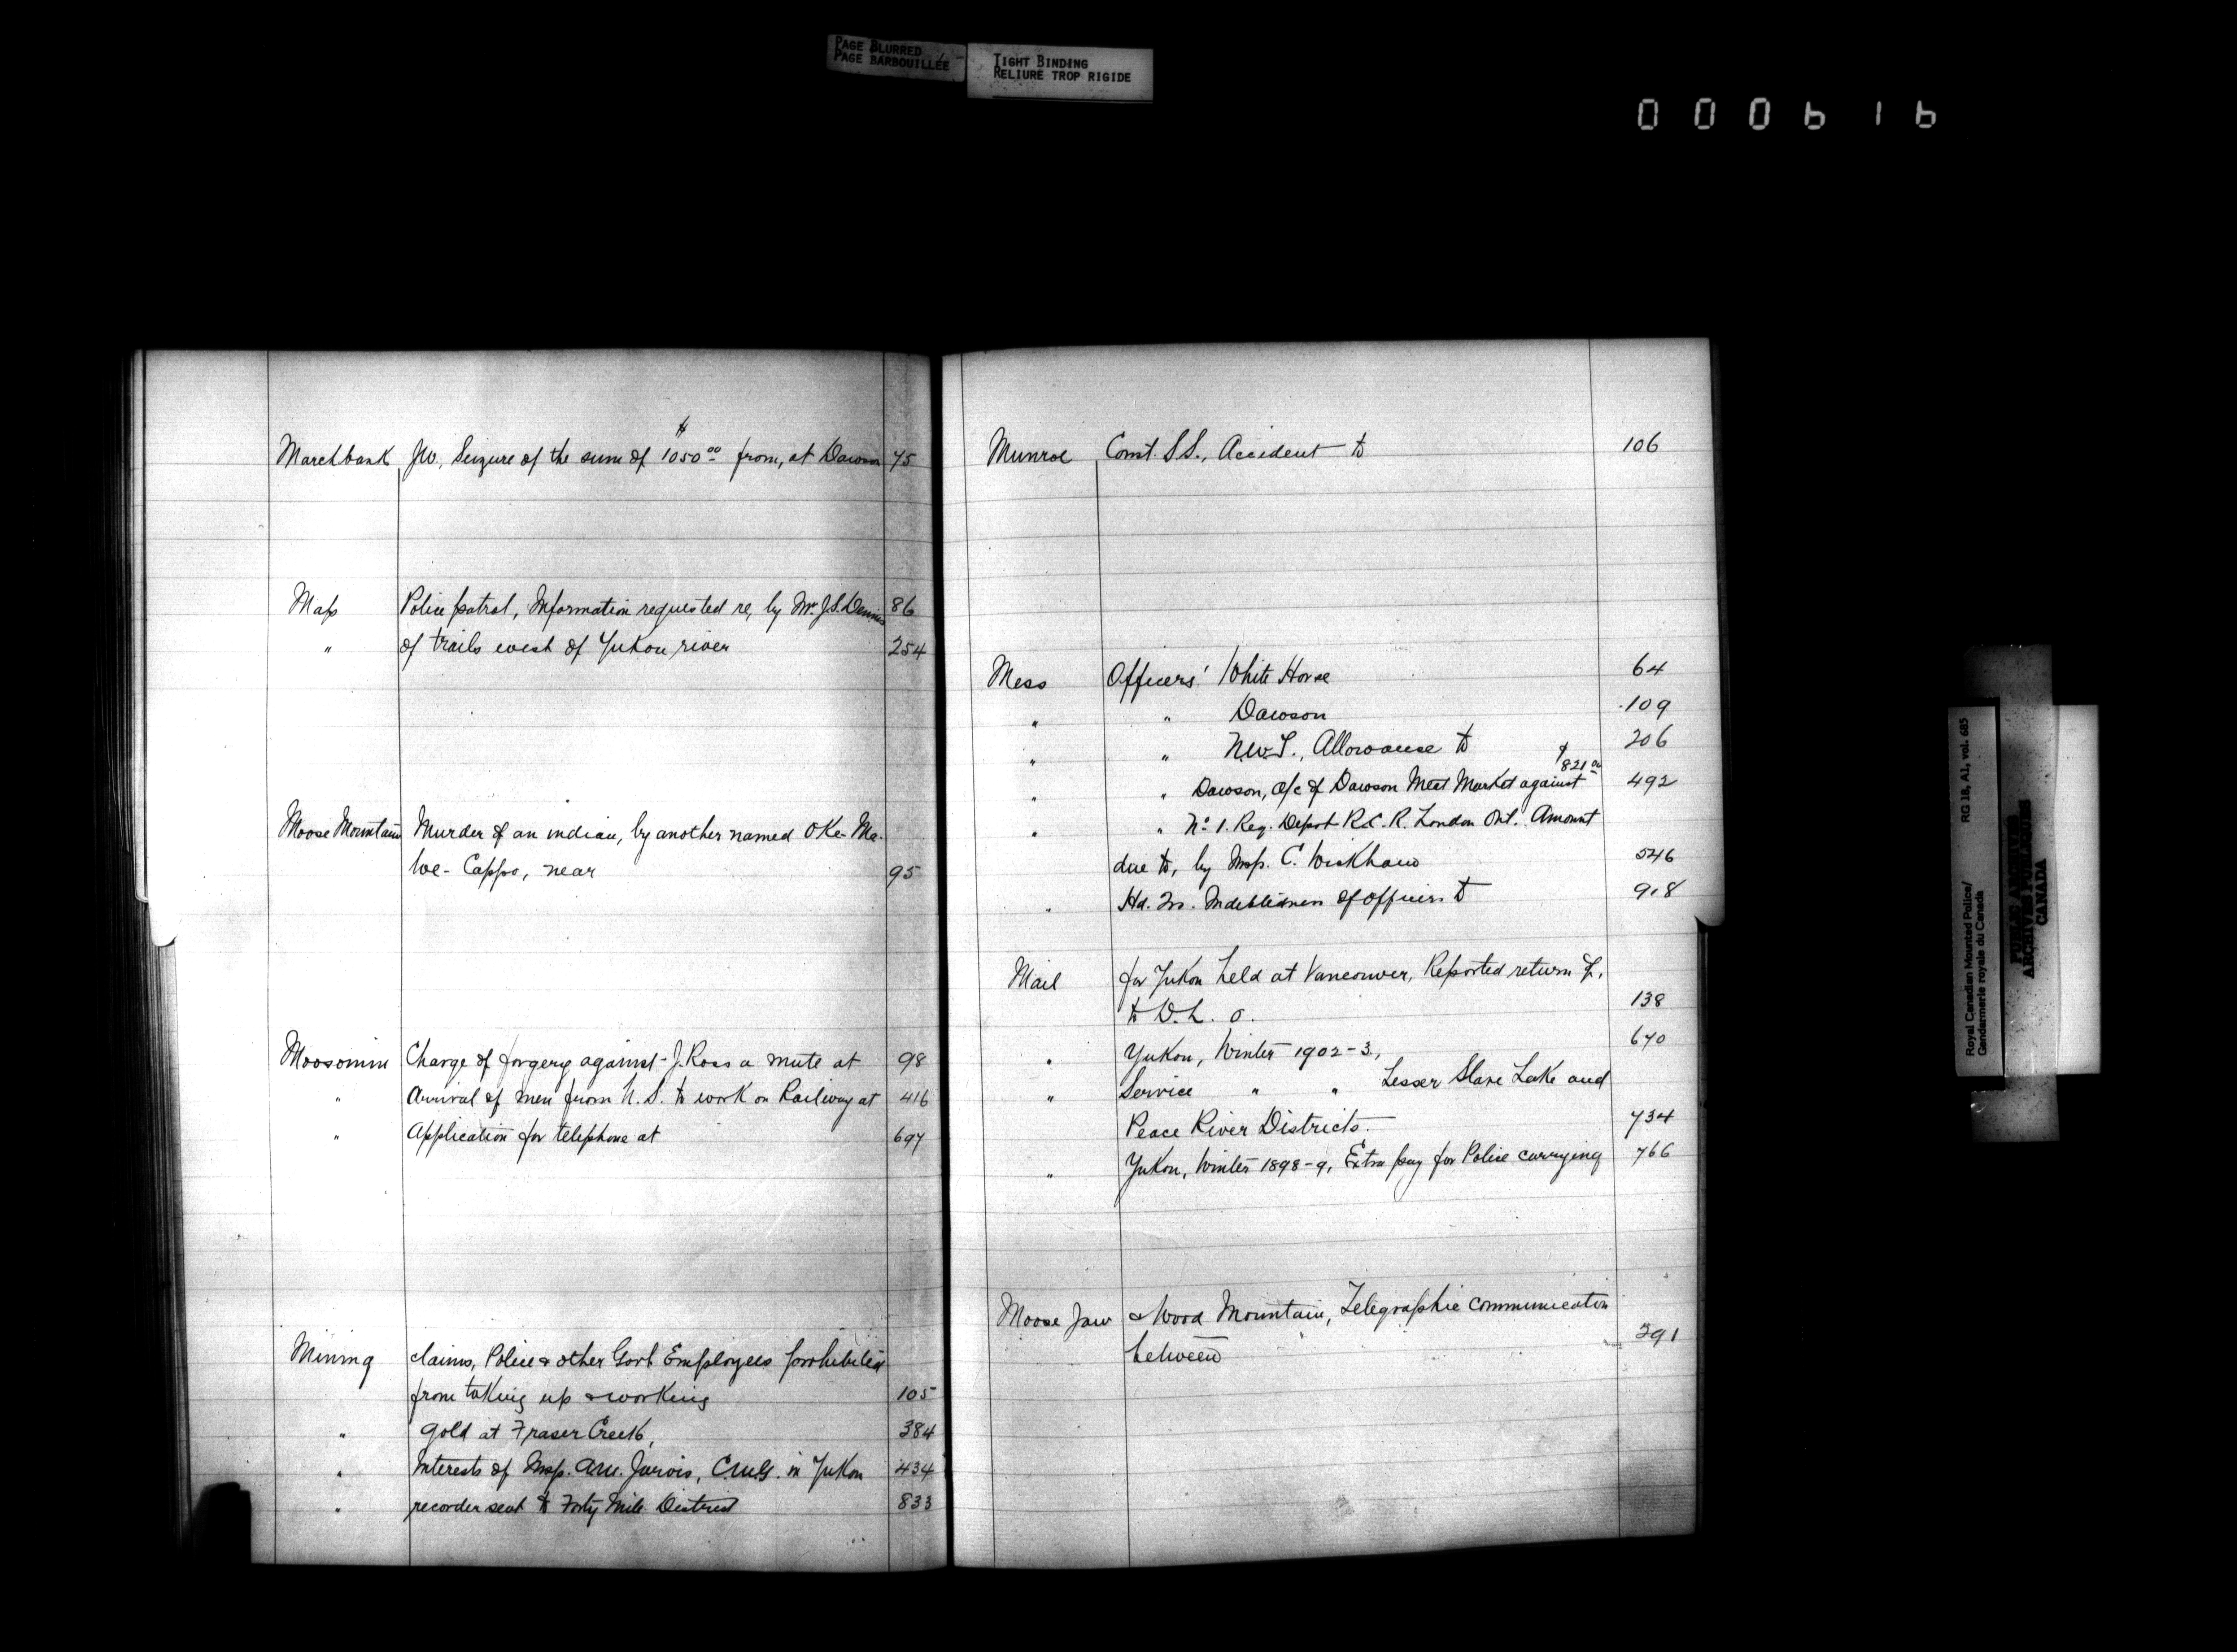 PAGE BLURRED
PAGE BARBOUILLÉE
TIGHT BINDING
RELIURE TROP RIGIDE
000616
Marchbank J.W., Seizure of the sum of $1050.00 from, at Dawson 75
Map Police patrol, Information requested re, by Mr. J.S. Dennis 86
" of trails west of Yukon river 254
Moose Mountain Murder of an indian, by another named O'Ke-Ma-
We-Cappo, near 95
Moosomin Charge of forgery against J. Ross a mute at 98
" Arrival of men from U.S. to work on Railway at 416
" Application for telephone at 697
Mining claims, Police & other Govt Employees prohibited
from taking up & working 105
" gold at Fraser Creek, 384
" Interests of Insp. A.M. Jarvis, C.M.G. in Yukon 434
" recorder sent to Forty Mile District 833
Munroe Const. S.S., Accident to 106
Mess Officers' White Horse 64
" " Dawson 109
" " N.W.T., Allowance to 206
" " Dawson, a/c of Dawson Meat Market against $821.00 492
" " No 1. Reg. Depot R.C.R. London Ont. Amount
due to, by Insp. C. Wickham 546
" Hd. Qrs. Indebtedness of officers to 918
Mail for Yukon held at Vancouver, Reported return of,
to D.L.O. 138
" Yukon, Winter 1902-3, 670
" Service " " Lesser Slave Lake and
Peace River Districts. 734
" Yukon, Winter 1898-9, Extra pay for Police carrying 766
Moose Jaw & Wood Mountain, Telegraphic communication
between 291
Royal Canadian Mounted Police/ RG 18, A1, vol. 685
Gendarmerie royale du Canada
PUBLIC ARCHIVES
ARCHIVES PUBLIQUES
CANADA